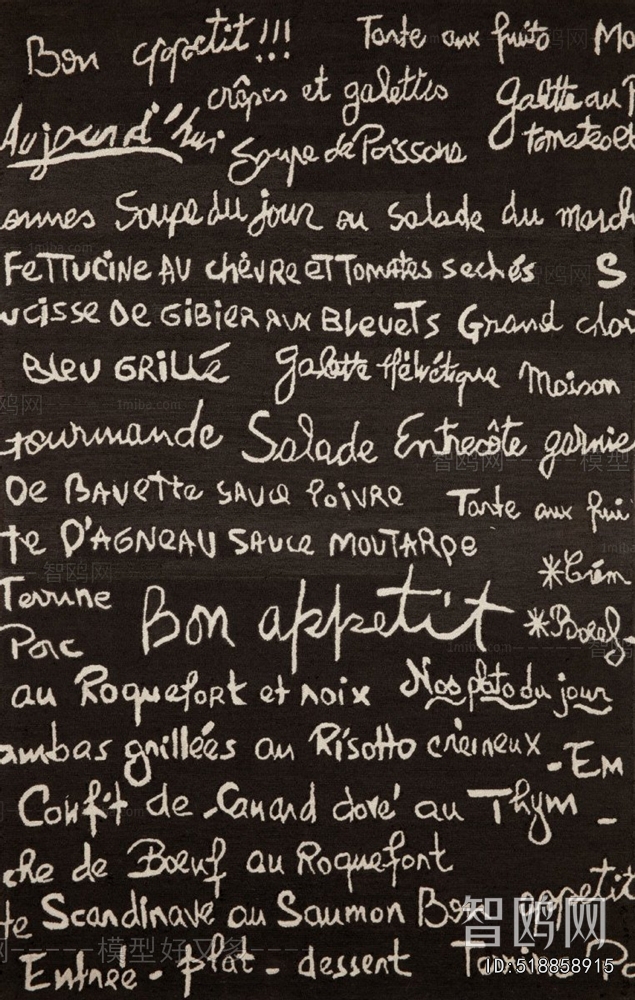 Bon appetit!!! Tarte aux fruits Mo
crêpes et galettes Galette au
Aujourd'hui Soupe de Poissons
onnes Soupe du jour ou Salade du march
FETTUCINE AU chèvRE ET Tomates sechés S
ucisse De GIBIER AUX BLEUETS Grand choi
BLEU GRILLÉ Galette Helvétique Maison
gourmande Salade Entrecôte garnie
De BAVETTE SAUCE POIVRE Tarte aux frui
te D'AGNEAU SAUCE MOUTARDE
Terrine Bon appetit
Porc
au Roquefort et noix Nos plats du jour
ambas grillées au Risotto crèmeux -Em
Confit de Canard doré au Thym -
che de Bœuf au Roquefort
te Scandinave au Saumon Bon appetit
Entrée - plat - dessert
智鸥网
ID:518858915